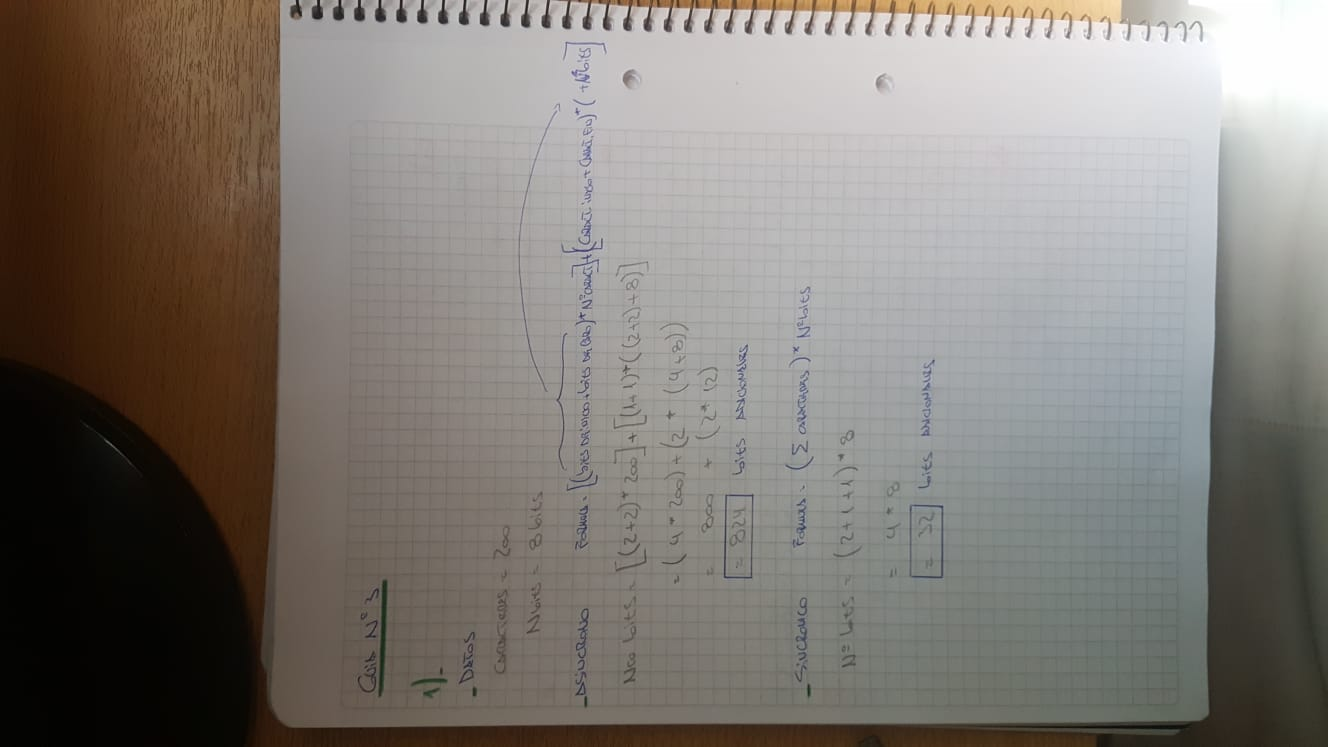 Guia N° 3
1)-
- Datos
Caracteres = 200
N bits = 8 bits
- Asincrono Formula = [(bits de inicio + bits de * N° caract] + [(caract. inicio + caract. fin) * ( + N°bits]
Nro bits = [(2+2) * 200] + [(1+1) * ((2+2)+8)]
= (4 * 200) + (2 * (4+8))
= 800 + (2 * 12)
= 824 bits adicionales
- Sincronico Formula = (Σ caracteres) * N°bits
N° bits = (2+1+1) * 8
= 4 * 8
= 32 bits adicionales